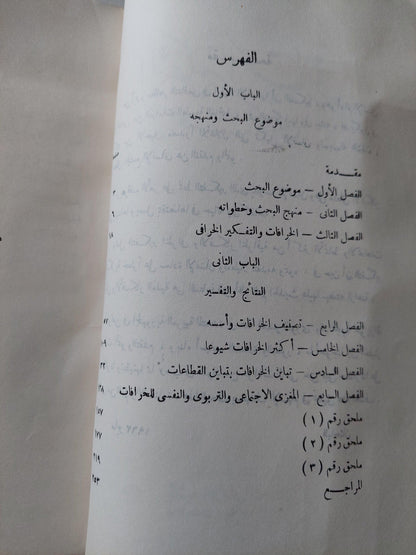 الفهرس
الباب الأول
موضوع البحث ومنهجه
مقدمة
الفصل الأول – موضوع البحث ٣
الفصل الثانى – منهج البحث وخطواته ٦
الفصل الثالث – الخرافات والتفكير الخرافى ١٨
الباب الثانى
النتائج والتفسير
الفصل الرابع – تصنيف الخرافات وأسسه
الفصل الخامس – أكثر الخرافات شيوعا
الفصل السادس – تباين الخرافات بتباين القطاعات
الفصل السابع – المغزى الاجتماعى والتربوى والنفسى للخرافات
ملحق رقم ( ١ )
ملحق رقم ( ٢ )
ملحق رقم ( ٣ )
المراجع